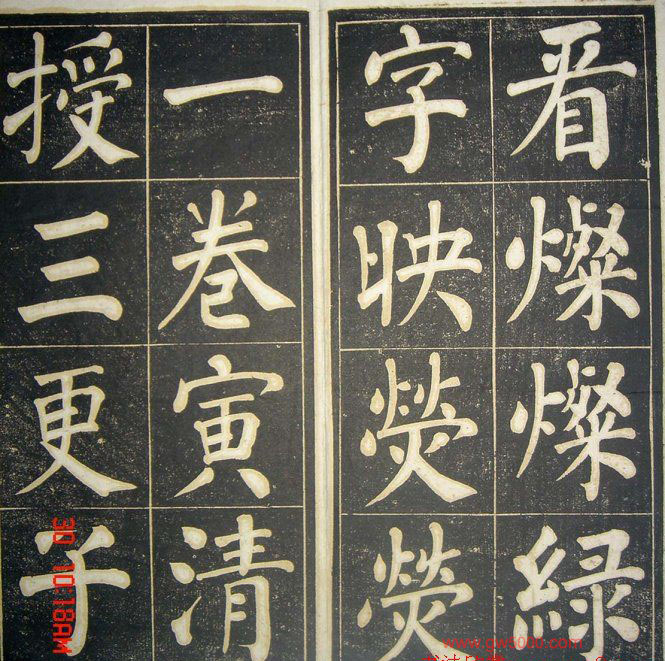 看燦燦緑
字映熒熒
一巻寅清
授三更子
30 10:18AM
www.gw5000.com